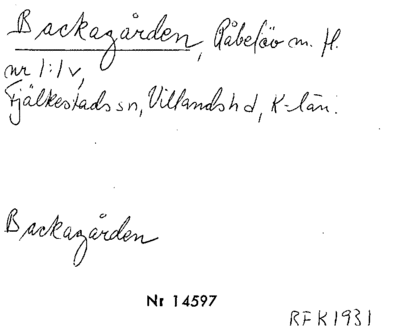 Backagården, Råbelöv m. fl.
nr 1:1 v,
Fjälkestads sn, Villands hd, K-län.
Backagården
Nr 14597
RFK1931